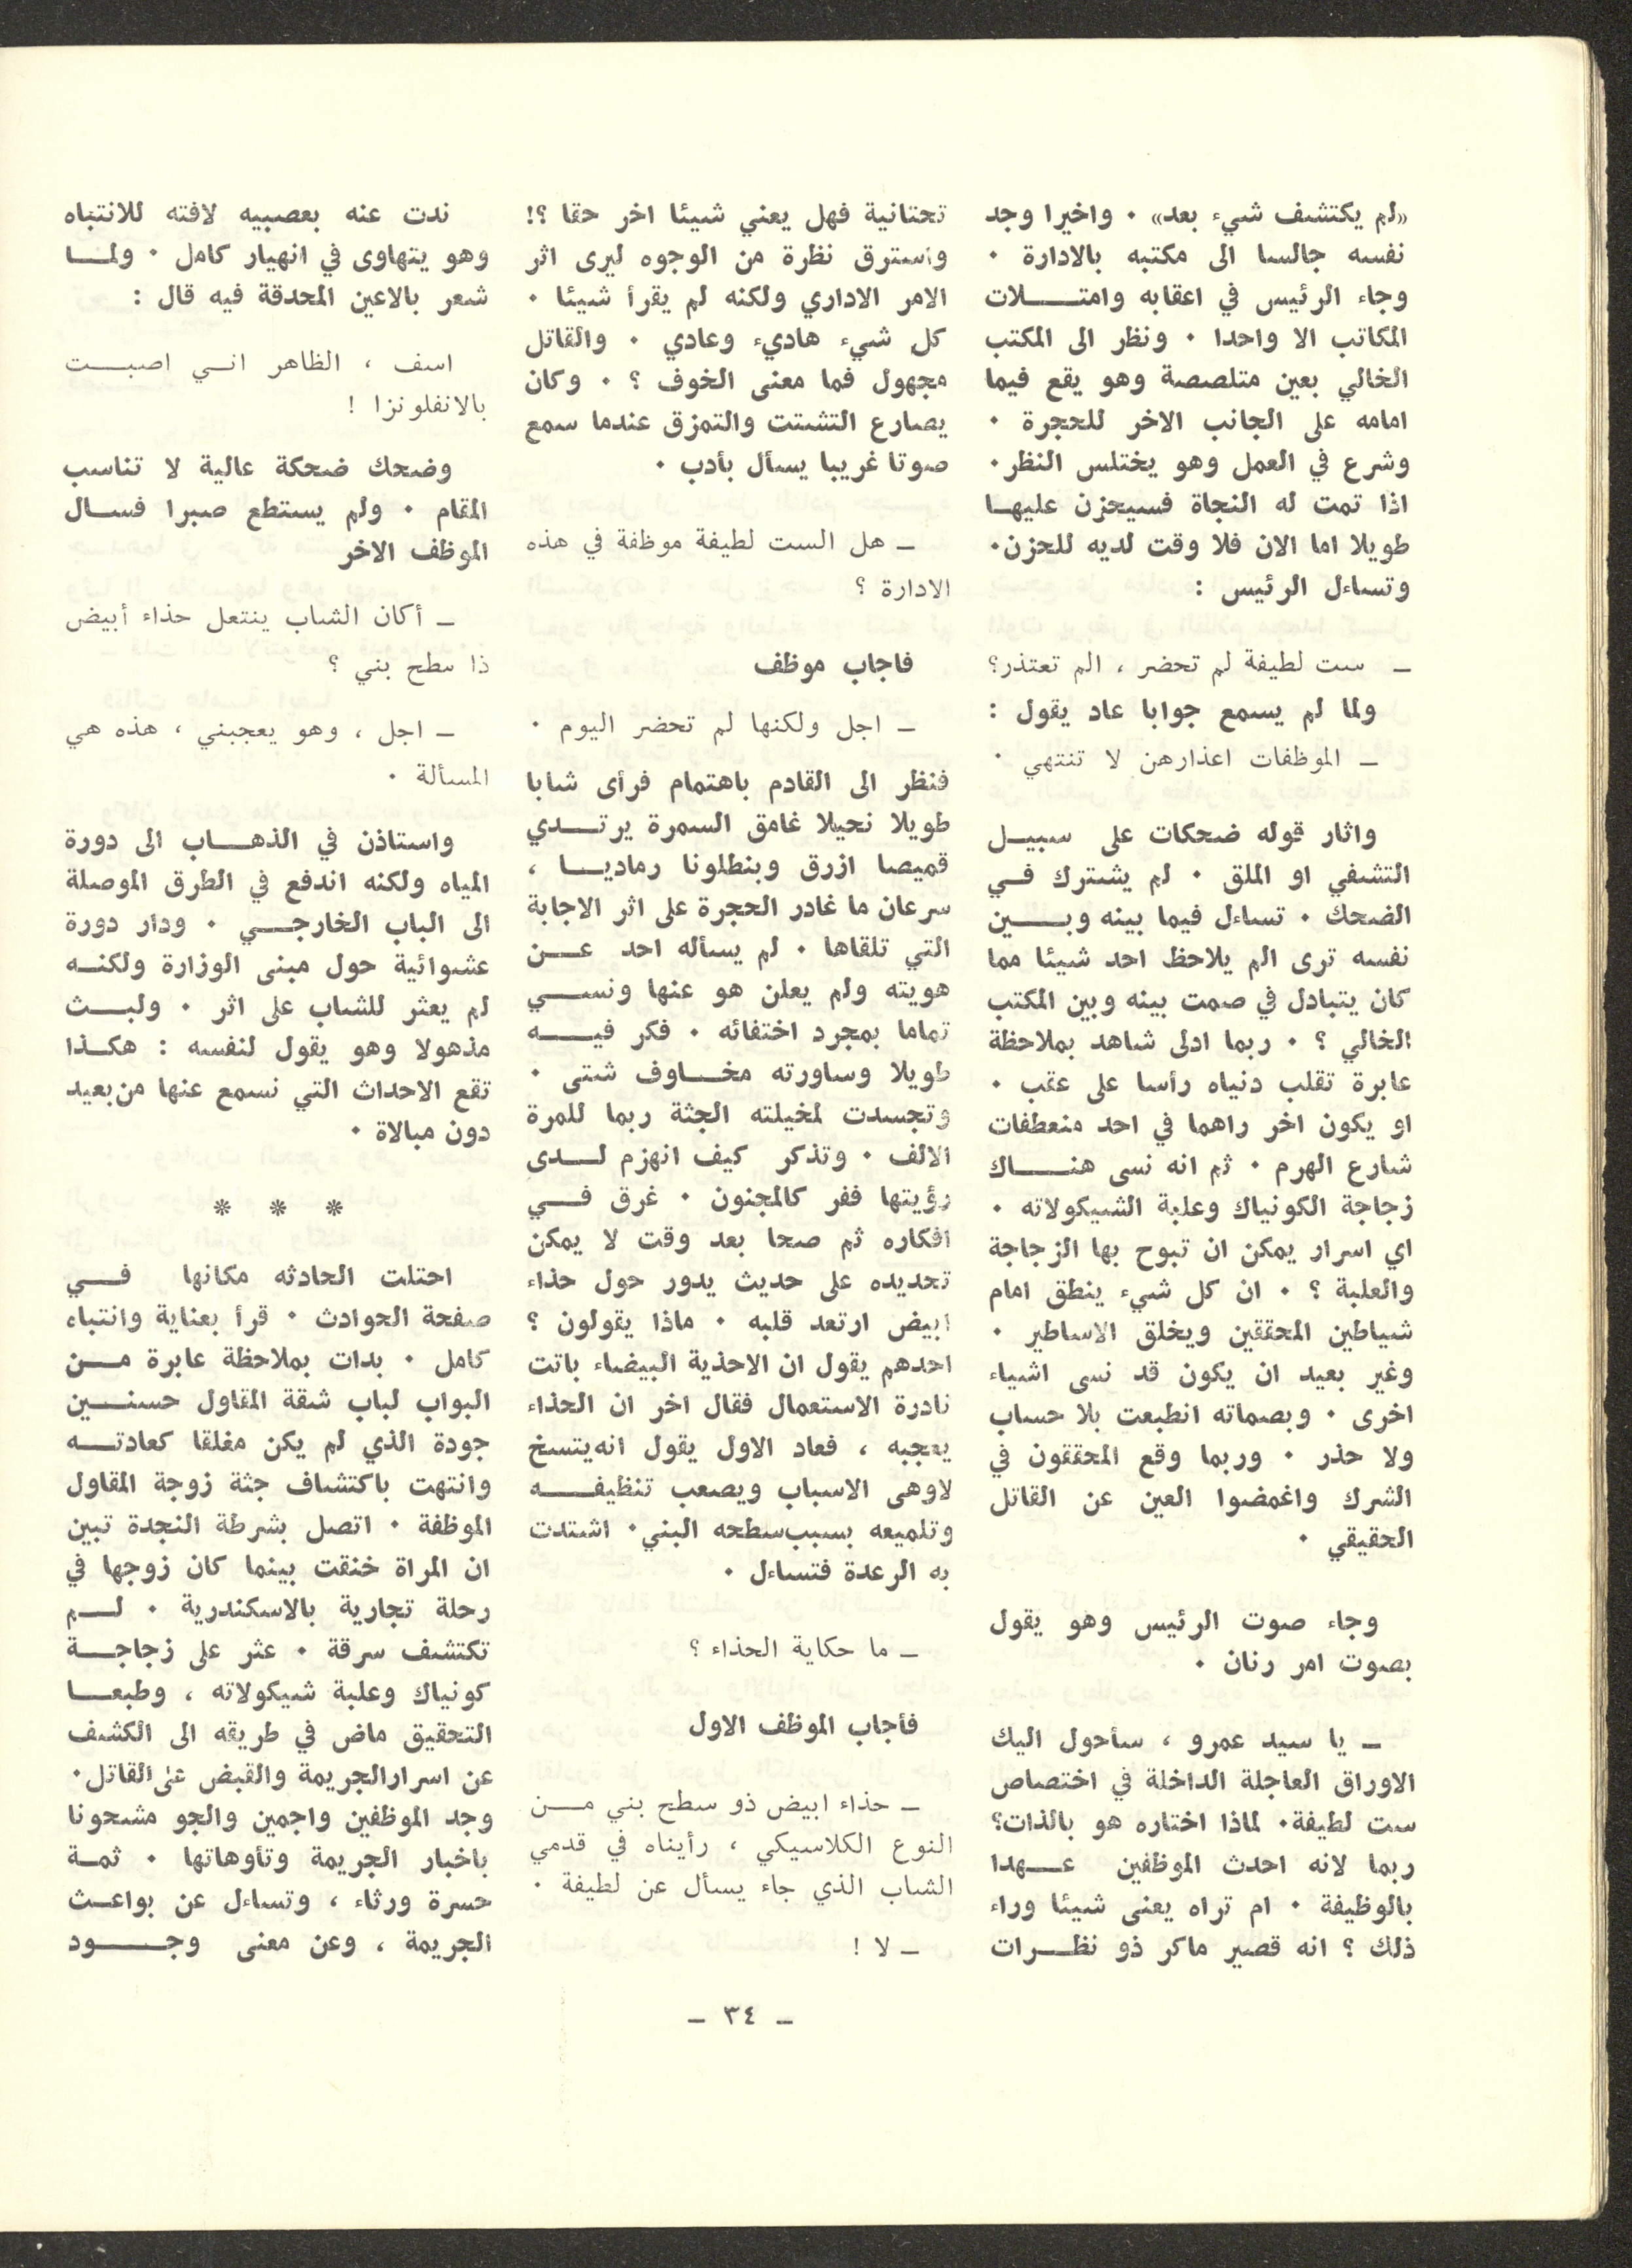 «لم يكتشف شيء بعد» ٠ واخيرا وجد
نفسه جالسا الى مكتبه بالادارة ٠
وجاء الرئيس في اعقابه وامتلات
المكاتب الا واحدا ٠ ونظر الى المكتب
الخالي بعين متلصصة وهو يقع فيما
امامه على الجانب الاخر للحجرة ٠
وشرع في العمل وهو يختلس النظر٠
اذا تمت له النجاة فسيحزن عليها
طويلا اما الان فلا وقت لديه للحزن٠
وتساءل الرئيس :
ـ ست لطيفة لم تحضر ، الم تعتذر؟
ولما لم يسمع جوابا عاد يقول :
ـ الموظفات اعذارهن لا تنتهي ٠
واثار قوله ضحكات على سبيل
التشفي او الملق ٠ لم يشترك في
الضحك ٠ تساءل فيما بينه وبين
نفسه ترى الم يلاحظ احد شيئا مما
كان يتبادل في صمت بينه وبين المكتب
الخالي ؟ ٠ ربما ادلى شاهد بملاحظة
عابرة تقلب دنياه رأسا على عقب ٠
او يكون اخر راهما في احد منعطفات
شارع الهرم ٠ ثم انه نسى هناك
زجاجة الكونياك وعلبة الشيكولاته ٠
اي اسرار يمكن ان تبوح بها الزجاجة
والعلبة ؟ ٠ ان كل شيء ينطق امام
شياطين المحققين ويخلق الاساطير ٠
وغير بعيد ان يكون قد نسى اشياء
اخرى ٠ وبصماته انطبعت بلا حساب
ولا حذر ٠ وربما وقع المحققون في
الشرك واغمضوا العين عن القاتل
الحقيقي ٠
وجاء صوت الرئيس وهو يقول
بصوت امر رنان ٠
ـ يا سيد عمرو ، سأحول اليك
الاوراق العاجلة الداخلة في اختصاص
ست لطيفة٠ لماذا اختاره هو بالذات؟
ربما لانه احدث الموظفين عهدا
بالوظيفة ٠ ام تراه يعنى شيئا وراء
ذلك ؟ انه قصير ماكر ذو نظرات
تحتانية فهل يعني شيئا اخر حقا ؟!
واسترق نظرة من الوجوه ليرى اثر
الامر الاداري ولكنه لم يقرأ شيئا ٠
كل شيء هاديء وعادي ٠ والقاتل
مجهول فما معنى الخوف ؟ ٠ وكان
يصارع التشتت والتمزق عندما سمع
صوتا غريبا يسأل بأدب ٠
ـ هل الست لطيفة موظفة في هذه
الادارة ؟
فاجاب موظف
ـ اجل ولكنها لم تحضر اليوم ٠
فنظر الى القادم باهتمام فرأى شابا
طويلا نحيلا غامق السمرة يرتدي
قميصا ازرق وبنطلونا رماديا ،
سرعان ما غادر الحجرة على اثر الاجابة
التي تلقاها ٠ لم يسأله احد عن
هويته ولم يعلن هو عنها ونسي
تماما بمجرد اختفائه ٠ فكر فيه
طويلا وساورته مخاوف شتى ٠
وتجسدت لمخيلته الجثة ربما للمرة
الالف ٠ وتذكر كيف انهزم لدى
رؤيتها ففر كالمجنون ٠ غرق في
افكاره ثم صحا بعد وقت لا يمكن
تحديده على حديث يدور حول حذاء
ابيض ارتعد قلبه ٠ ماذا يقولون ؟
احدهم يقول ان الاحذية البيضاء باتت
نادرة الاستعمال فقال اخر ان الحذاء
يعجبه ، فعاد الاول يقول انه يتسخ
لاوهى الاسباب ويصعب تنظيفه
وتلميعه بسبب سطحه البني٠ اشتدت
به الرعدة فتساءل ٠
ـ ما حكاية الحذاء ؟
فأجاب الموظف الاول
ـ حذاء ابيض ذو سطح بني من
النوع الكلاسيكي ، رأيناه في قدمي
الشاب الذي جاء يسأل عن لطيفة ٠
ـ لا !
ندت عنه بعصبيه لافته للانتباه
وهو يتهاوى في انهيار كامل ٠ ولما
شعر بالاعين المحدقة فيه قال :
اسف ، الظاهر اني اصبت
بالانفلونزا !
وضحك ضحكة عالية لا تناسب
المقام ٠ ولم يستطع صبرا فسال
الموظف الاخر
ـ أكان الشاب ينتعل حذاء أبيض
ذا سطح بني ؟
ـ اجل ، وهو يعجبني ، هذه هي
المسألة ٠
واستاذن في الذهاب الى دورة
المياه ولكنه اندفع في الطرق الموصلة
الى الباب الخارجي ٠ ودار دورة
عشوائية حول مبنى الوزارة ولكنه
لم يعثر للشاب على اثر ٠ ولبث
مذهولا وهو يقول لنفسه : هكذا
تقع الاحداث التي نسمع عنها من بعيد
دون مبالاة ٠
* * *
احتلت الحادثه مكانها في
صفحة الحوادث ٠ قرأ بعناية وانتباء
كامل ٠ بدات بملاحظة عابرة من
البواب لباب شقة المقاول حسنين
جودة الذي لم يكن مغلقا كعادته
وانتهت باكتشاف جثة زوجة المقاول
الموظفة ٠ اتصل بشرطة النجدة تبين
ان المراة خنقت بينما كان زوجها في
رحلة تجارية بالاسكندرية ٠ لم
تكتشف سرقة ٠ عثر على زجاجة
كونياك وعلبة شيكولاته ، وطبعا
التحقيق ماض في طريقه الى الكشف
عن اسرار الجريمة والقبض على القاتل٠
وجد الموظفين واجمين والجو مشحونا
باخبار الجريمة وتأوهاتها ٠ ثمة
حسرة ورثاء ، وتساءل عن بواعث
الجريمة ، وعن معنى وجود
ـ ٣٤ ـ